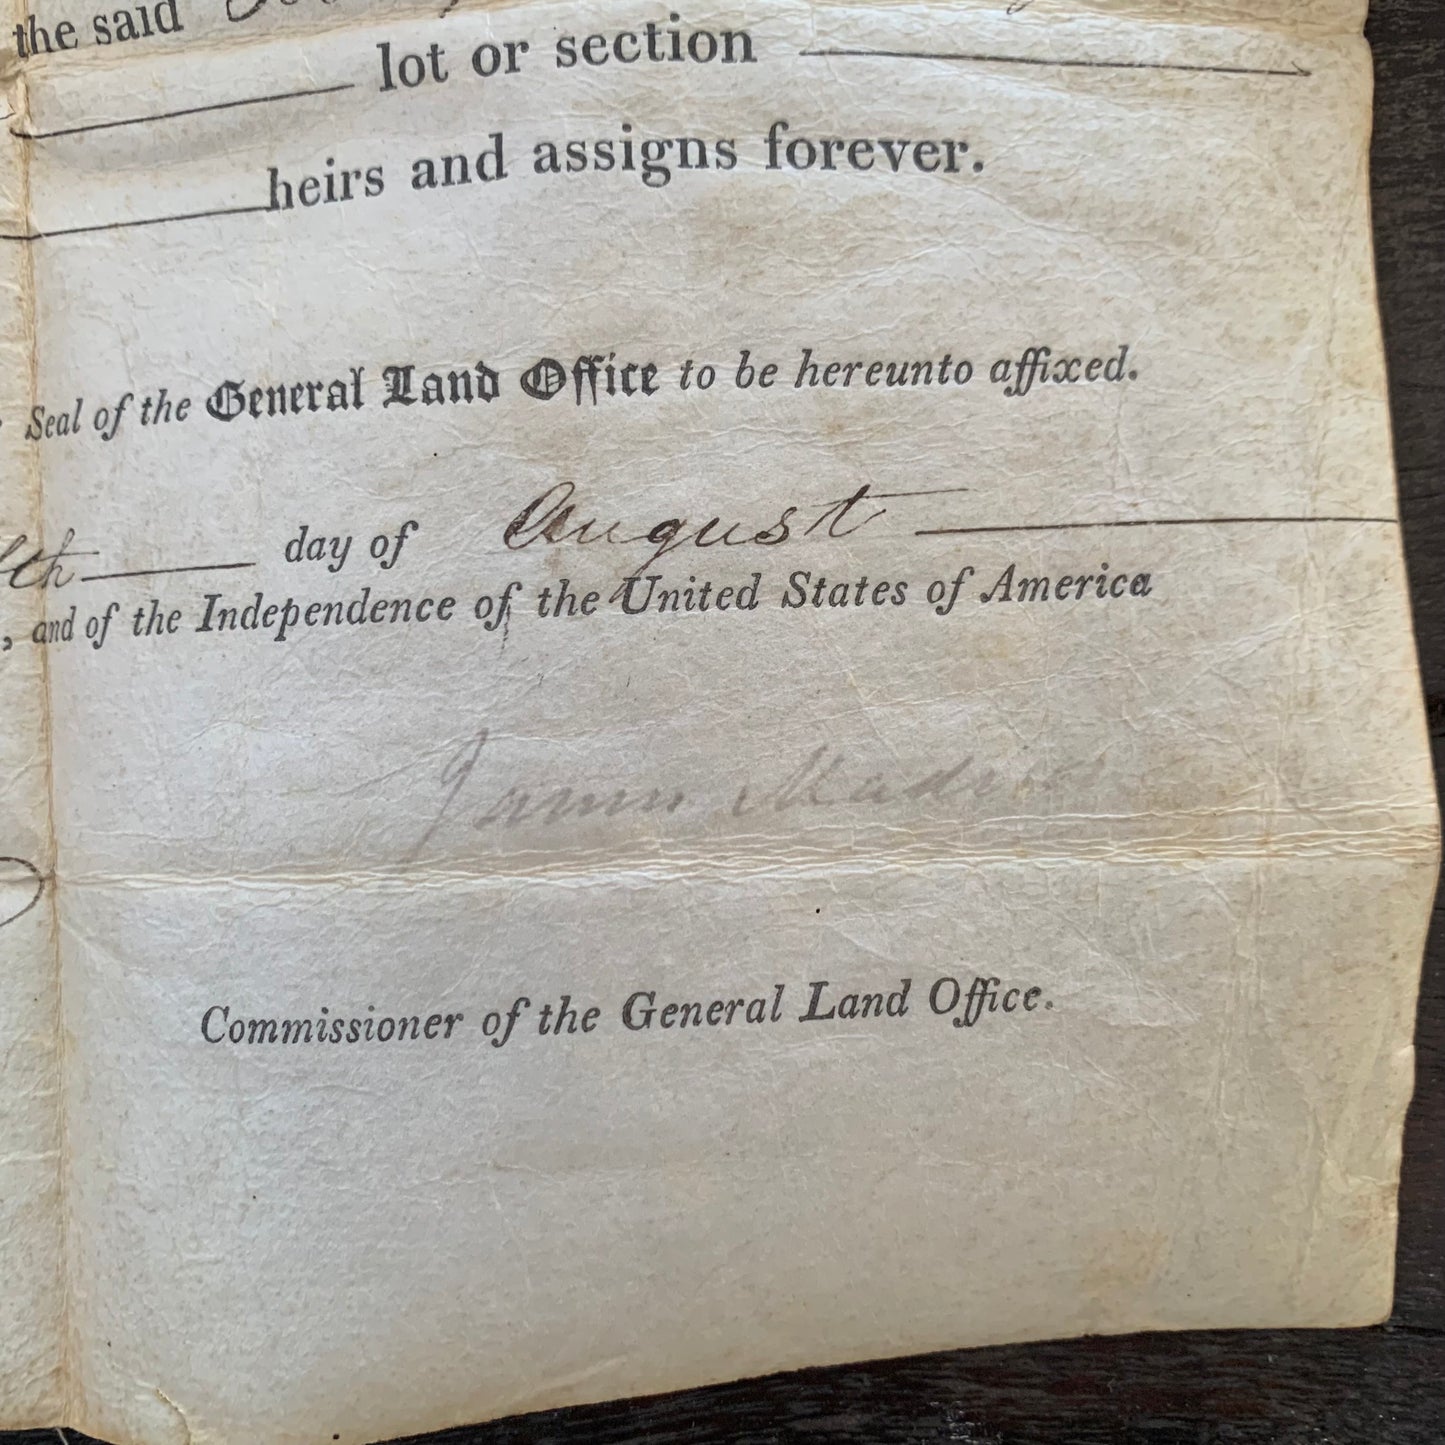 the said
lot or section
heirs and assigns forever.
Seal of the General Land Office to be hereunto affixed.
th day of August
, and of the Independence of the United States of America
James Madison
Commissioner of the General Land Office.